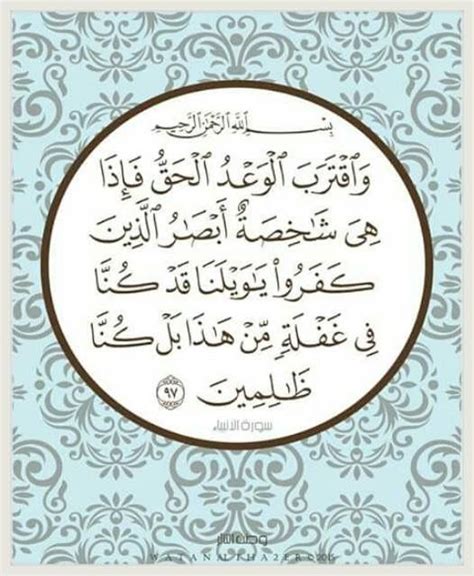 بِسْمِ ٱللَّهِ ٱلرَّحْمَٰنِ ٱلرَّحِيمِ
وَٱقْتَرَبَ ٱلْوَعْدُ ٱلْحَقُّ فَإِذَا
هِىَ شَٰخِصَةٌ أَبْصَٰرُ ٱلَّذِينَ
كَفَرُوا۟ يَٰوَيْلَنَا قَدْ كُنَّا
فِى غَفْلَةٍ مِّنْ هَٰذَا بَلْ كُنَّا
ظَٰلِمِينَ ٩٧
سورة الانبياء
WATANALTHA2ER©2015